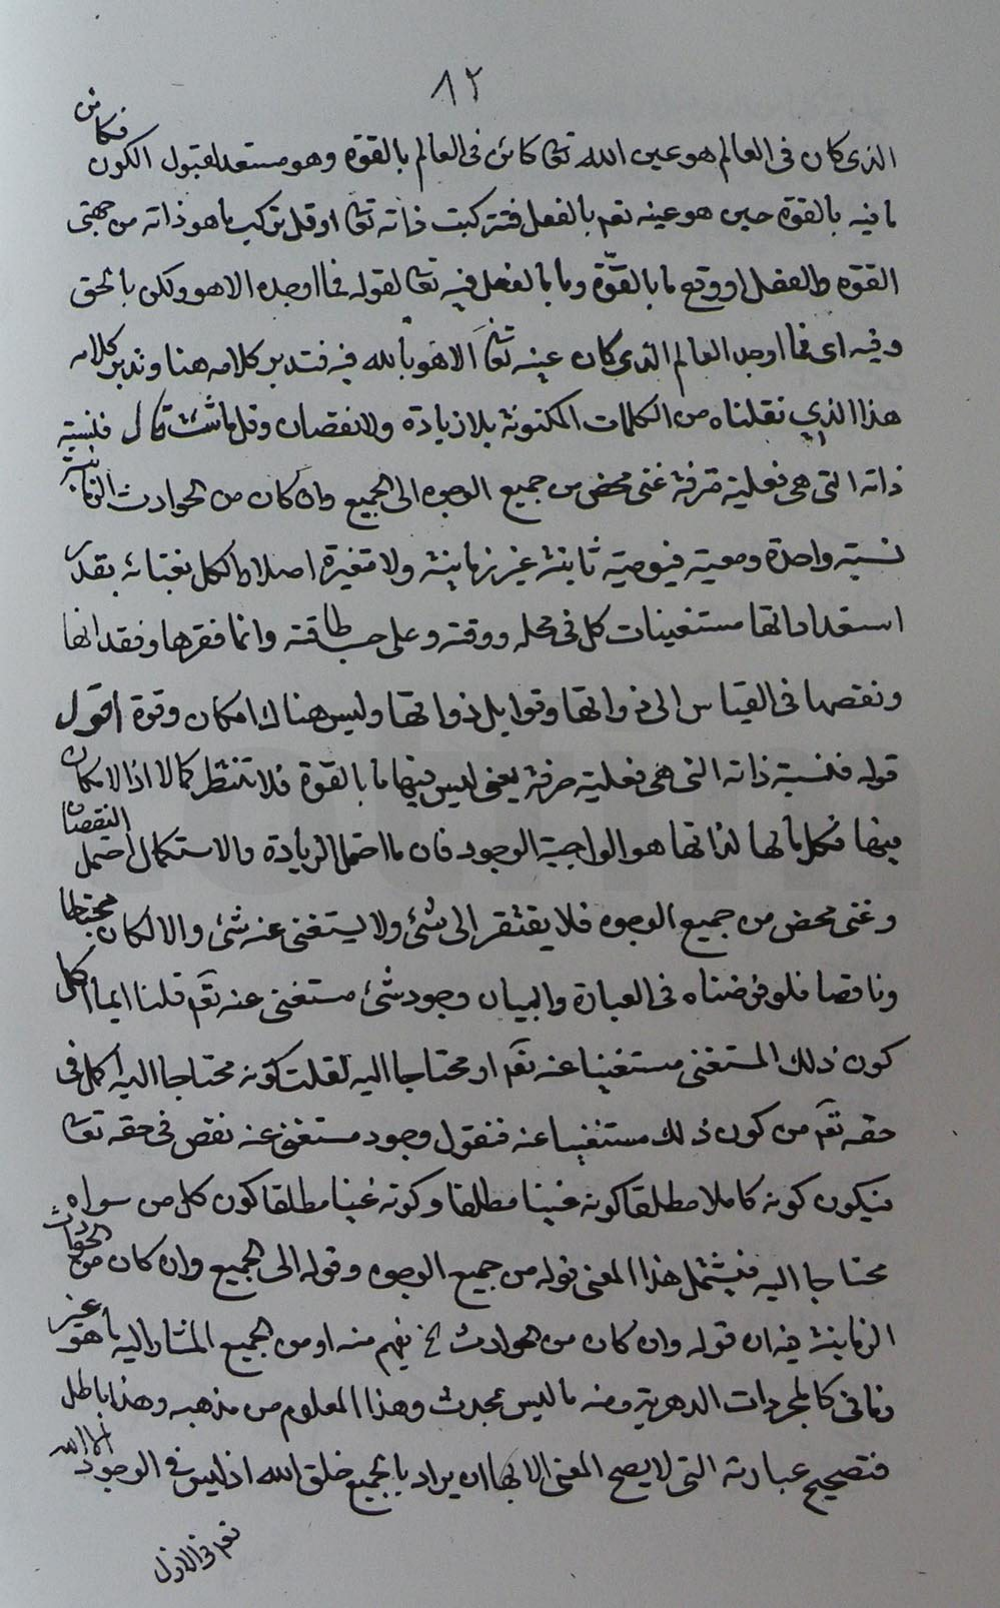 ٨٢
الذى كان فى العالم هو عين الله تعا كائن فى العالم بالقوة وهو مستعد لقبول الكون فكان
ما فيه بالقوة حين هو عينه نعم بالفعل فتركبت ذاته تعا او قل تركب ما هو ذاته من جهتى
القوة والفعل او وقع ما بالقوّة وما بالفعل فيه تعا لقوله فما اوجده الا هو ولكن بالحق
وفيه اى فما اوجد العالم الذى كان عينه تعا الا هو بالله فيه فتدبر كلامه هنا وتدبر كلامه
هذا الذي نقلناه من الكلمات المكنونة بلا زيادة ولا نقصان وقل ما شئت قال فنسبة
ذاته التى هى فعلية صرفة غنى محض من جميع الوجوه الى الجميع وان كان من الحوادث الزمانية
نسبة واحدة ومعية قيومية ثابتة غير زمانية ولا متغيرة اصلا والكل بغنائه بقدر
استعداداتها مستغنيات كل فى محله ووقته وعلى حسب طاقته وانما فقرها وفقدانها
ونقصها فى القياس الى ذواتها وقوابل ذواتها وليس هناك امكان وقوة اقول
قوله فنسبة ذاته التى هى فعلية صرفة يعنى ليس فيها ما بالقوة فلا تنتظر كمالا اذ الامكان
فيها فكل ما لها لذاتها هو الواجبة الوجود فان ما احتمل الزيادة والاستكمال احتمل النقصان
وغنى محض من جميع الوجوه فلا يفتقر الى شئ ولا يستغنى عنه شئ والا لكان محتاجا
وناقصا فلو فرضناه فى العبارة والبيان وجود شئ مستغنى عنه تعم قلنا ايما اكمل
كون ذلك المستغنى مستغنيا عنه تعم او محتاجا اليه لقلت كونه محتاجا اليه اكمل فى
حقه تعم من كون ذلك مستغنيا عنه فنقول وجود مستغن عنه نقص فى حقه تعا
فيكون كونه كاملا مطلقا كونه غنيا مطلقا وكونه غنيا مطلقا كون كل من سواه
محتاجا اليه فيشتمل هذا المعنى قوله من جميع الوجوه وقوله الى الجميع وان كان من الحوادث
الزمانية فيه ان قوله وان كان من الحوادث الخ يفهم منه او من الجميع المشار اليه ما هو غير
زمانى كالمجردات الدهرية ومنه ما ليس بمحدث وهذا المعلوم من مذهبه وهذا باطل
فتصحيح عبارته التى لا يصح المعنى الا بها ان يراد بالجميع خلق الله اذ ليس فى الوجود الا الله
تعم فى الازل